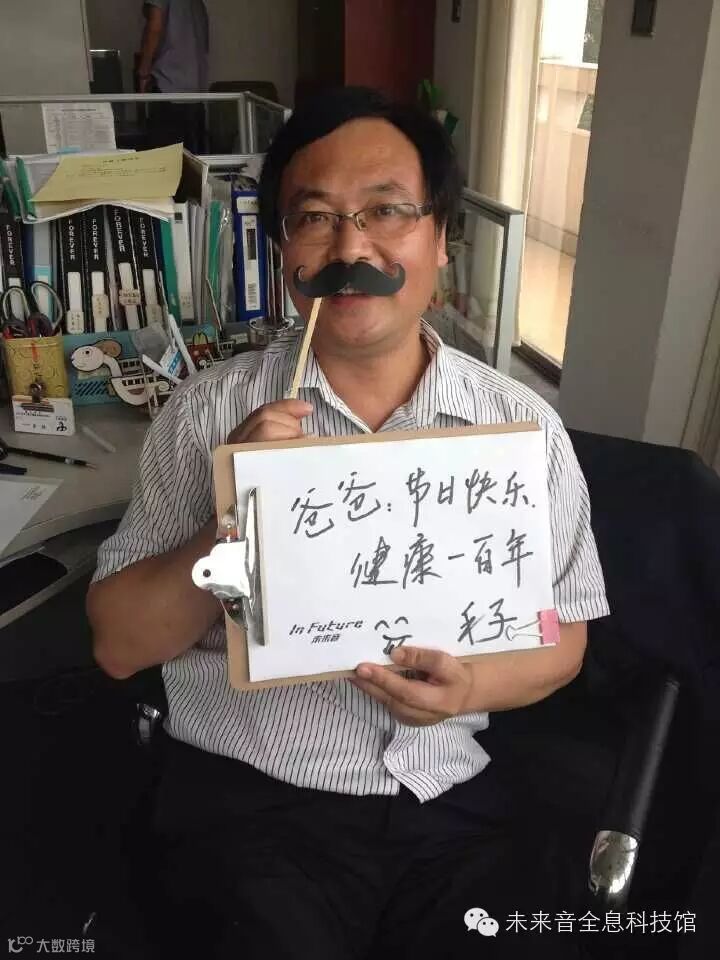 FOREVER
FOREVER
FOREVER
FOREVER
爸爸:节日快乐.
健康一百年
In Future
未来音
毛子
未来音全息科技馆
大数跨境